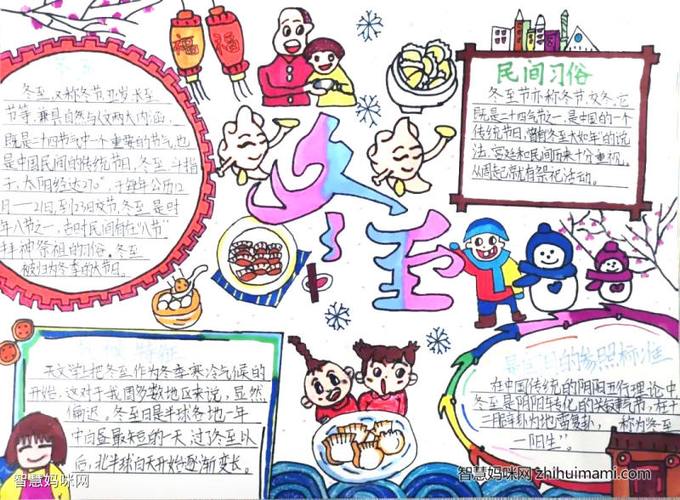 福
福
冬至
冬至
冬至又称冬节、
节等,兼具自然与人文两大内涵,
既是二十四节气中一个重要的节气,也
是中国民间的传统节日。冬至
太阳
冬至是时
年八节"之一,古时民间有在"八节"
拜神祭祖的习俗。冬至
被视为冬季的大节日。
民间习俗
冬至节亦称冬节、交冬。它
既是二十四节气之一,是中国的一个
传统节日,曾有"冬至大如年"的说
法,宫廷和民间历来十分重视,
从周起就有祭祀活动。
特征
天文学上把冬至作为冬季,寒冷气候的
开始,这对于我国多数地区来说,显然
偏迟。冬至日是球各地一年
中白昼最短的一天,过了冬至以
后,北半球白天开始逐渐变长。
的传照标准
在中国传统的阴阳五行理论中
冬至是阴阳转化的关键节气,在十
二辟卦为地雷复卦,称为冬至
一阳生"。
智慧妈咪网
智慧妈咪网 zhihuimami.com